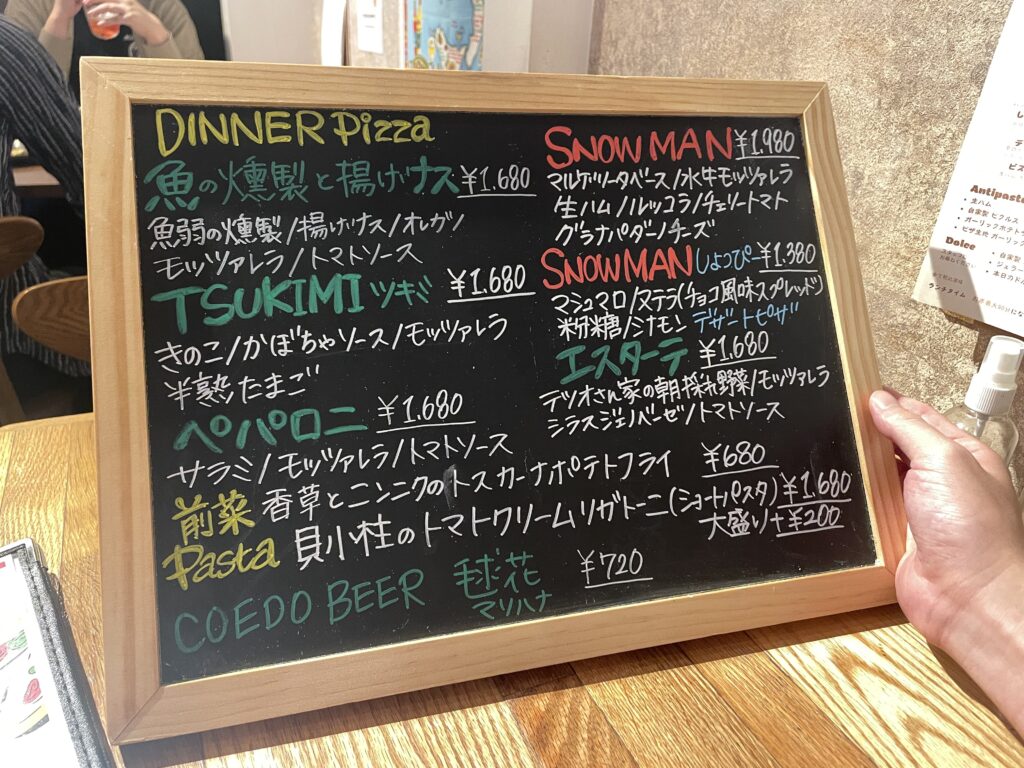 DINNER Pizza
魚の燻製と揚げナス ¥1.680
魚弱の燻製/揚げナス/オレガノ
モッツァレラ/トマトソース
TSUKIMI ツキミ ¥1.680
きのこ/かぼちゃソース/モッツァレラ
半熟たまご
ペパロニ ¥1.680
サラミ/モッツァレラ/トマトソース
SNOW MAN ¥1.980
マルゲリータベース/水牛モッツァレラ
生ハム/ルッコラ/チェリートマト
グラナパダーノチーズ
SNOWMAN しょっぴー ¥1.380
マシュマロ/ヌテラ(チョコ風味スプレッド)
粉糖/シナモン デザートピザ
エスターテ ¥1.680
テツオさん家の朝採れ野菜/モッツァレラ
シラスジェノベーゼ/トマトソース
前菜 香草とニンニクのトスカーナポテトフライ ¥680
Pasta 貝小柱のトマトクリームリガトーニ(ショートパスタ) ¥1.680
大盛り+¥200
COEDO BEER 毬花 ¥720
マリハナ
Antipasto
• 生ハム
• 自家製 ピクルス
• ガーリックポテトフ
• ピザ生地 ガーリック
Dolce
• 自家製
• ジェラー
• 本日カド
ランチタイム